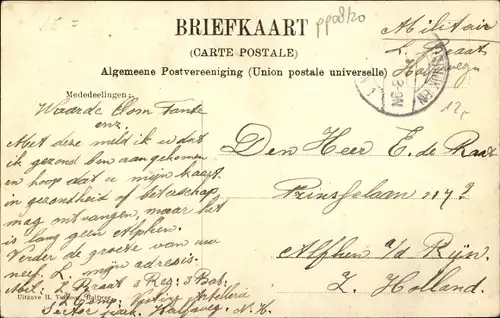 BRIEFKAART
(CARTE POSTALE)
Algemeene Postvereeniging (Union postale universelle)
pp08/20
Militair
L. Braat
Halfweg
12,-
Mededeelingen:
Waarde Oom Tante
enz.
Met deze meld ik u dat
ik gezond ben aangekomen
en hoop dat u mijn kaart
in gezondheid of beterschap
mag ontvangen, maar het
is lang geen Alphen.
Verder de groete van uw
neef L. mijn adres is.
Mil: L. Braat 3 Reg: 3 Bat.
2 Comp. Vesting Artellerie
Sector park Halfweg. N. H.
Den Heer E. de
Prinsselaan
Alphen a/d Rijn.
Z. Holland.
Uitgave H. Halfweg